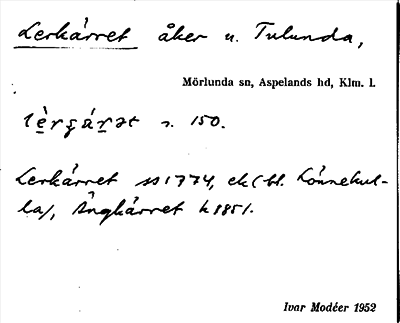 Lerkärret åker u. Tulunda,
Mörlunda sn, Aspelands hd, Klm. l.
150.
Lerkärret ss 1774, ek (bl. Lönnekul-
la), Ängkärret k 1851.
Ivar Modéer 1952